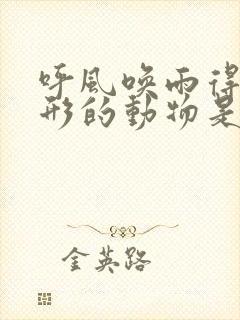 呼風喚雨得
形的動物是
金英路